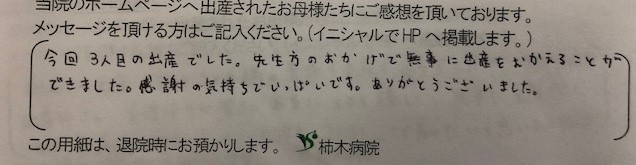 当院のホームページへ出産されたお母様たちにご感想を頂いております。
メッセージを頂ける方はご記入ください。(イニシャルでHPへ掲載します。)
今回3人目の出産でした。先生方のおかげで無事に出産をおかえることが
できました。感謝の気持ちでいっぱいです。ありがとうございました。
この用紙は、退院時にお預かりします。 柿木病院